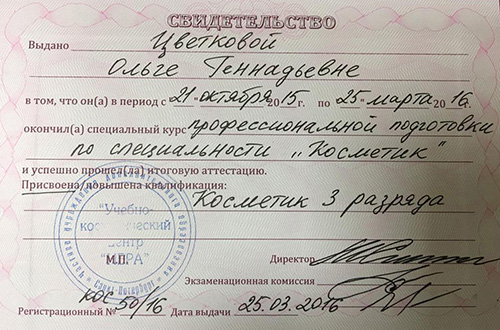 СВИДЕТЕЛЬСТВО
Выдано Цветковой
Ольге Геннадьевне
в том, что он(а) в период с 21 октября 2015 г. по 25 марта 2016 г.
окончил(а) специальный курс профессиональной подготовки
по специальности „Косметик"
и успешно прошел(ла) итоговую аттестацию.
Присвоена/повышена квалификация:
Косметик 3 разряда
"Учебно-
центр
М.П.
Санкт-Петербург
Директор
Экзаменационная комиссия
Регистрационный № КОС 50/16 Дата выдачи 25.03.2016